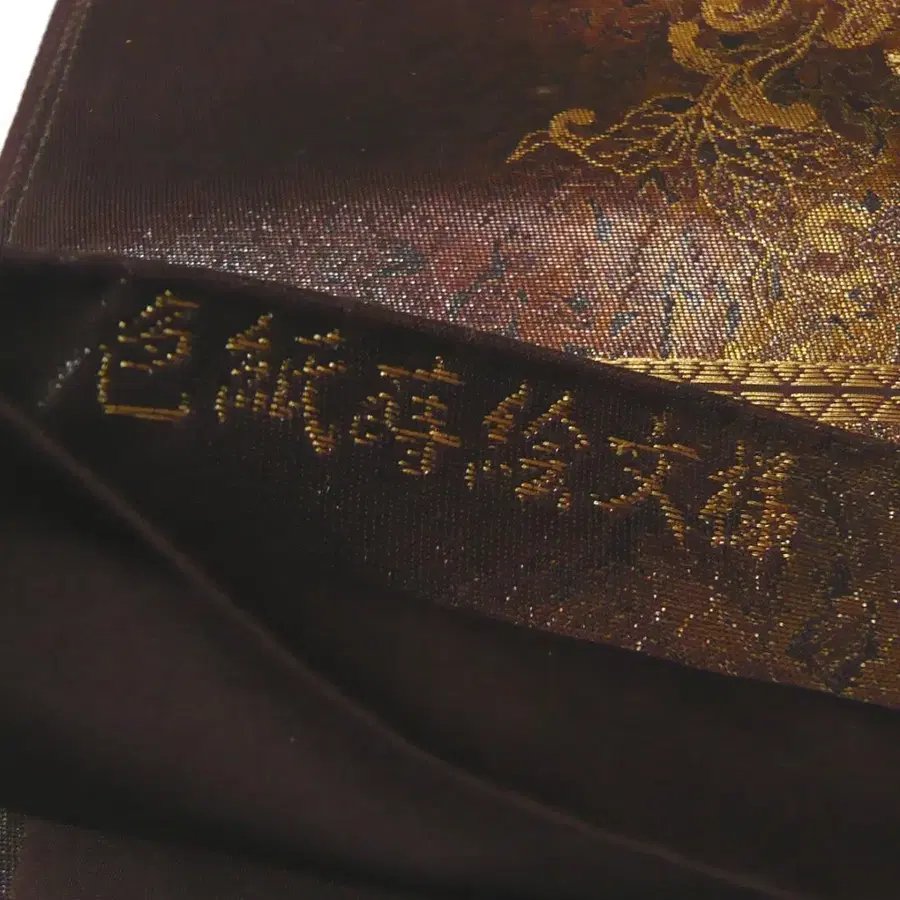 色紙蒔絵文様